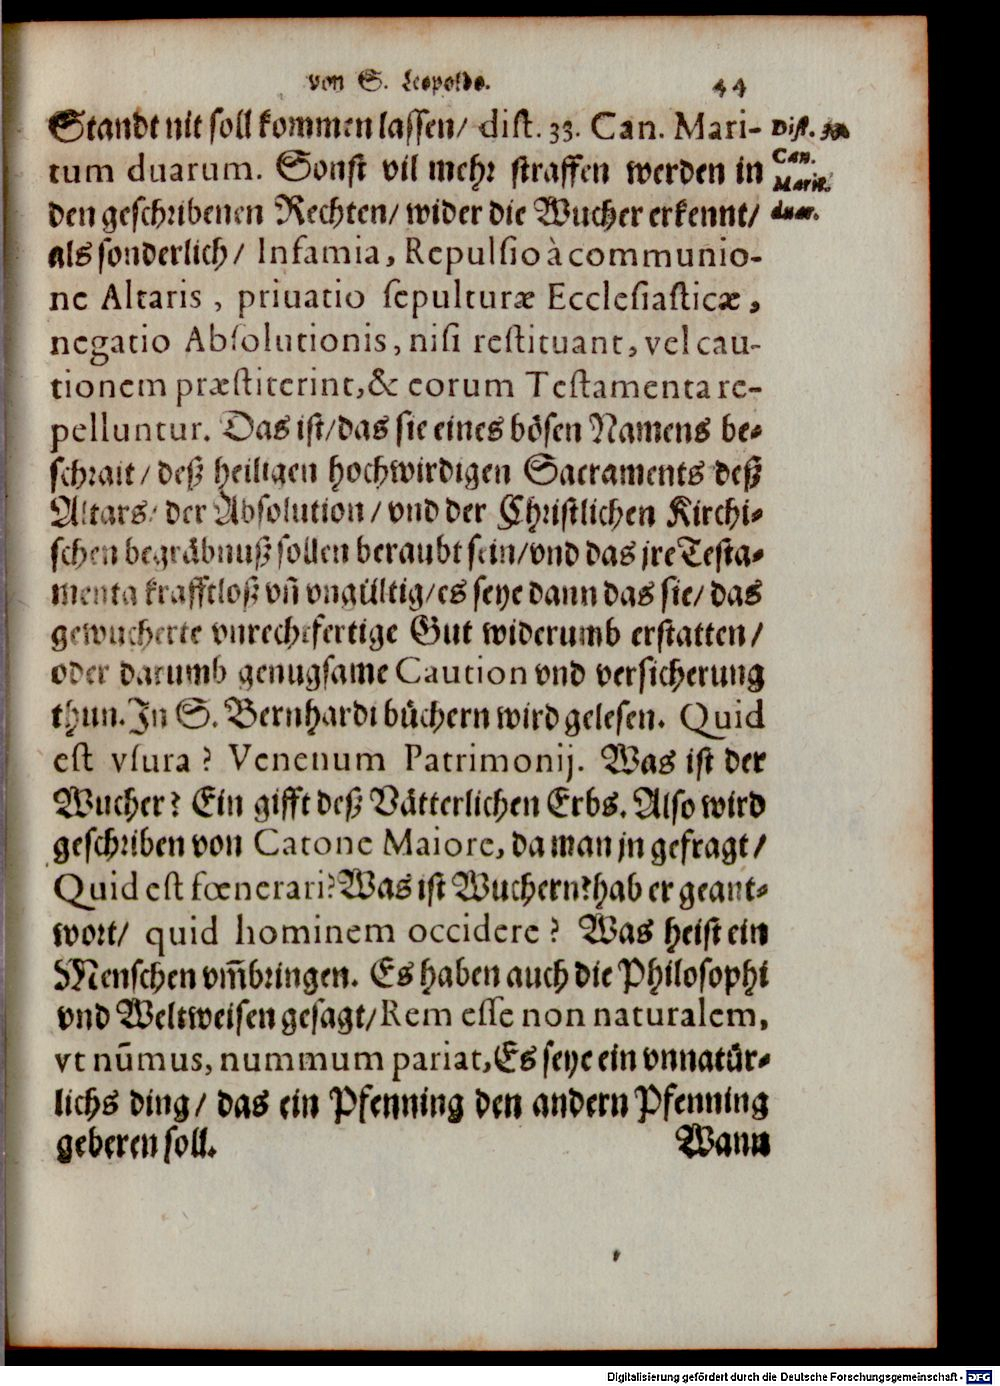 von S. Leopoldo. 44
Standt nit soll kommen lassen/ dist. 33. Can. Mari-
tum duarum. Sonst vil mehr straffen werden in
den geschribenen Rechten/ wider die Wucher erkennt/
als sonderlich/ Infamia, Repulſio à communio-
ne Altaris, priuatio ſepulturæ Eccleſiaſticæ,
negatio Abſolutionis, niſi reſtituant, vel cau-
tionem præſtiterint, & eorum Teſtamenta re-
pelluntur. Das ist/ das sie eines bösen Namens be-
schrait/ deß heiligen hochwirdigen Sacraments deß
Altars/ der Absolution/ vnd der Christlichen Kirchi-
schen begräbnuß sollen beraubt sein/ vnd das jre Testa-
menta krafftloß vñ vngültig/ es seye dann das sie/ das
gewucherte vnrechtfertige Gut widerumb erstatten/
oder darumb genugsame Caution vnd versicherung
thun. In S. Bernhardi büchern wird gelesen. Quid
est vſura? Venenum Patrimonij. Was ist der
Wucher? Ein gifft deß Vätterlichen Erbs. Also wird
geschriben von Catone Maiore, da man jn gefragt/
Quid est fœnerari? Was ist Wuchern? hab er geant-
wort/ quid hominem occidere? Was heist ein
Menschen vm̃bringen. Es haben auch die Philosophi
vnd Weltweisen gesagt/ Rem eſſe non naturalem,
vt nũmus, nummum pariat, Es seye ein vnnatür-
lichs ding/ das ein Pfenning den andern Pfenning
geberen soll. Wann
Dist. 33.
Can.
Marit.
duar.
Digitalisierung gefördert durch die Deutsche Forschungsgemeinschaft - DFG